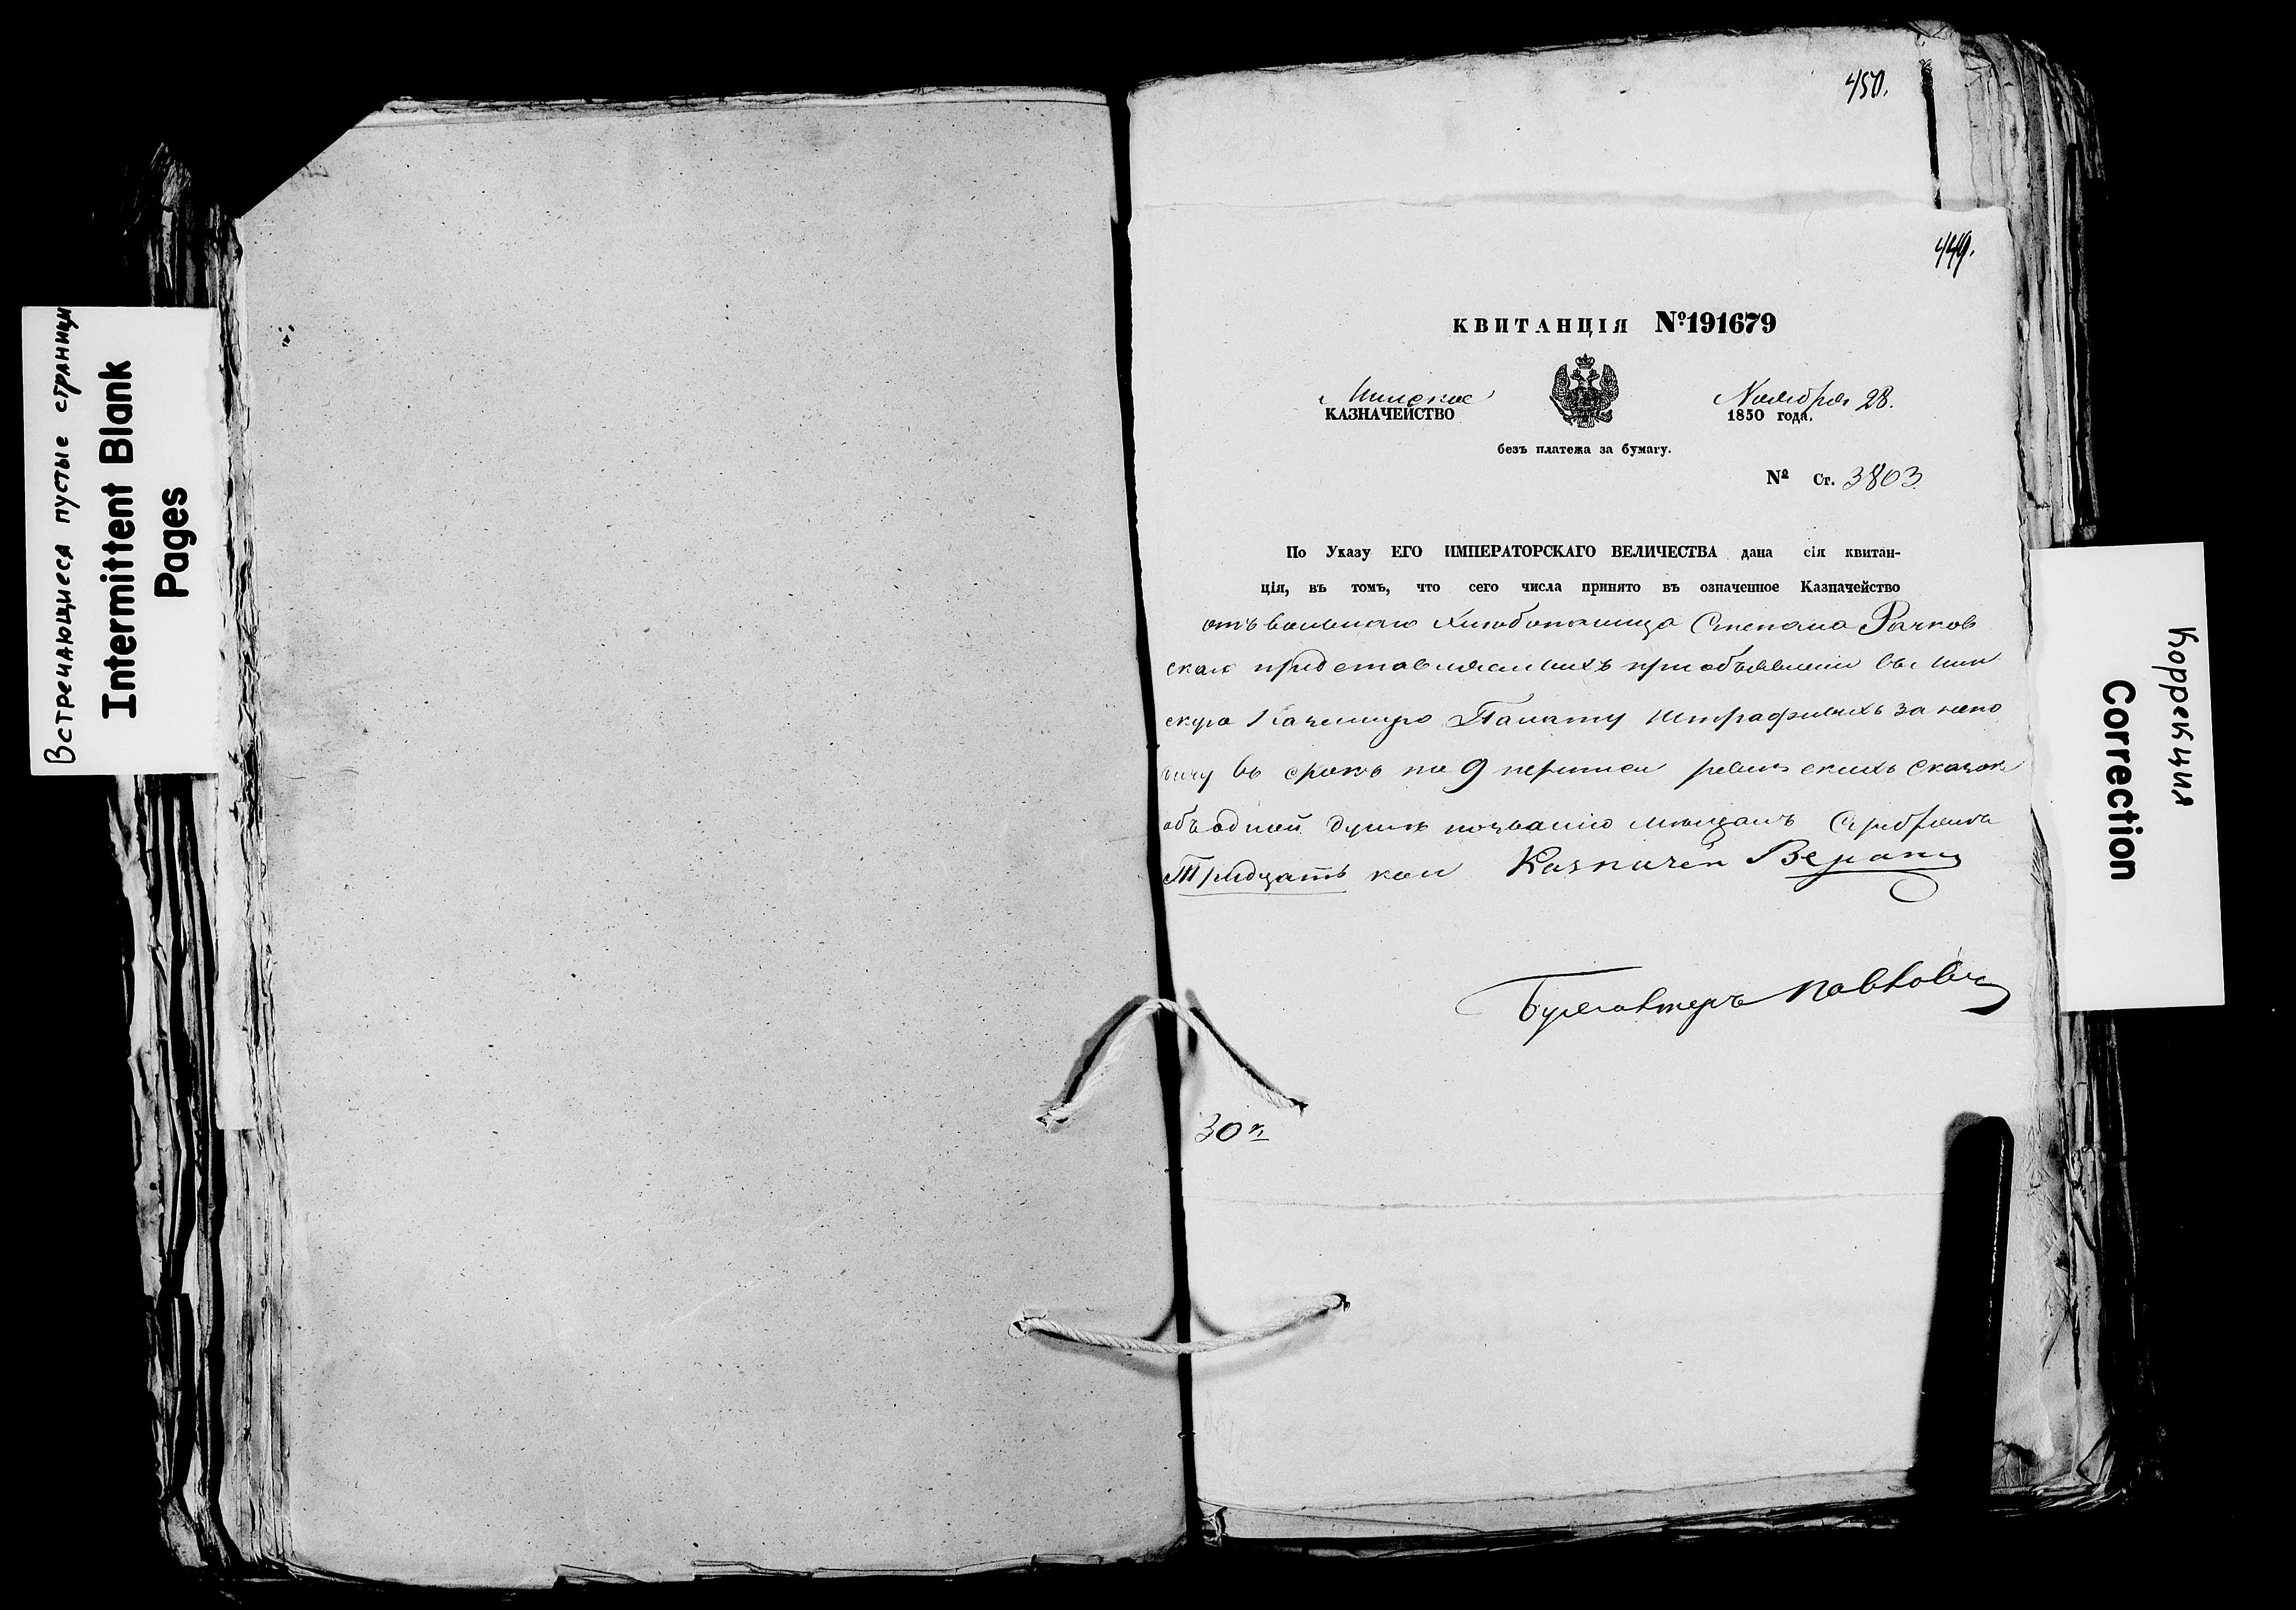 Встречающиеся пустые страницы
Intermittent Blank
Pages
450.
449.
КВИТАНЦІЯ №191679
Минское
КАЗНАЧЕЙСТВО
Ноября 28.
1850 года.
безъ платежа за бумагу.
№ Ст. 3803
По Указу ЕГО ИМПЕРАТОРСКАГО ВЕЛИЧЕСТВА дана сія квитан-
ція, въ томъ, что сего числа принято въ означенное Казначейство
отъ вольнаго хлебопашца Степана Рачков
скаго представленныхъ при объявленіи въ Мин
скую Казенную Палату штрафныхъ за непо
дачу въ срокъ по 9 переписи ревизскихъ сказок
объ одной душе по званію мещанъ Серебромъ
Тридцать коп Казначей
Бухгалтеръ Павлович
30 к
Коррекция
Correction